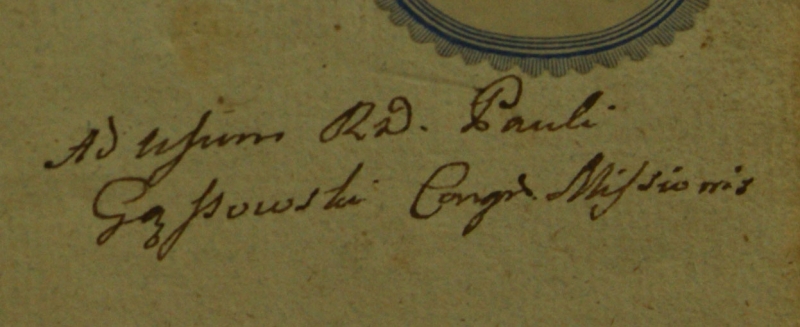 Ad usum Rd. Pauli
Gąssowski Congñ. Missionis